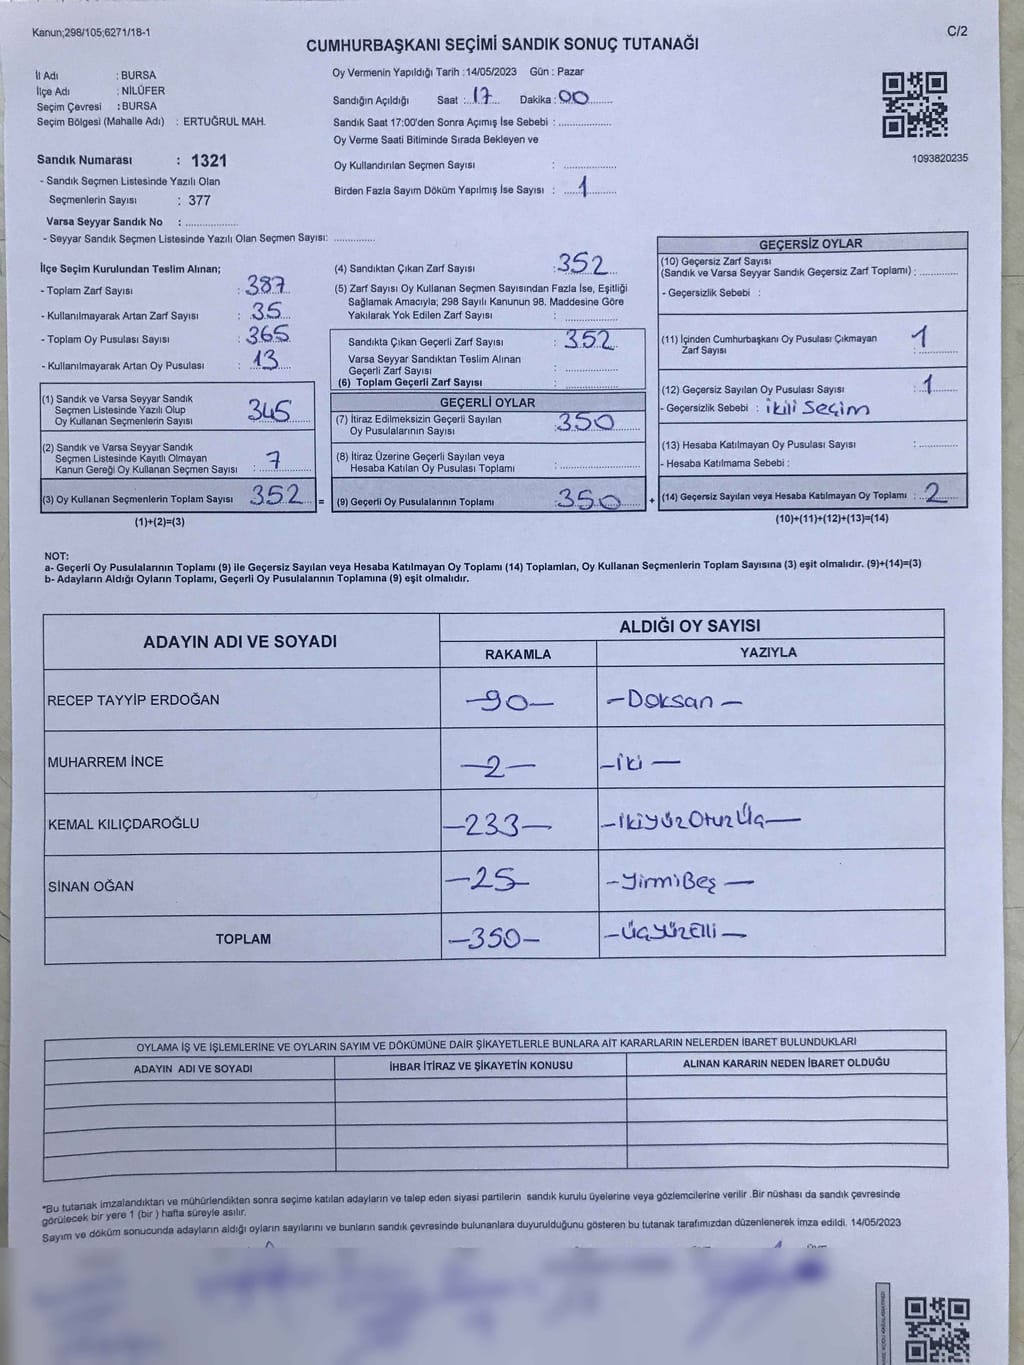 Kanun;298/105;6271/18-1
C/2
CUMHURBAŞKANI SEÇİMİ SANDIK SONUÇ TUTANAĞI
İl Adı : BURSA
İlçe Adı : NİLÜFER
Seçim Çevresi : BURSA
Seçim Bölgesi (Mahalle Adı) : ERTUĞRUL MAH.
Sandık Numarası : 1321
- Sandık Seçmen Listesinde Yazılı Olan
Seçmenlerin Sayısı : 377
Varsa Seyyar Sandık No : ................
- Seyyar Sandık Seçmen Listesinde Yazılı Olan Seçmen Sayısı: ..............
Oy Vermenin Yapıldığı Tarih :14/05/2023 Gün : Pazar
Sandığın Açıldığı Saat : 17 Dakika : 00
Sandık Saat 17:00'den Sonra Açımış İse Sebebi : ................
Oy Verme Saati Bitiminde Sırada Bekleyen ve
Oy Kullandırılan Seçmen Sayısı : ................
Birden Fazla Sayım Döküm Yapılmış İse Sayısı : 1
1093820235
İlçe Seçim Kurulundan Teslim Alınan;
- Toplam Zarf Sayısı : 387
- Kullanılmayarak Artan Zarf Sayısı : 35
- Toplam Oy Pusulası Sayısı : 365
- Kullanılmayarak Artan Oy Pusulası : 13
(1) Sandık ve Varsa Seyyar Sandık
Seçmen Listesinde Yazılı Olup
Oy Kullanan Seçmenlerin Sayısı 345
(2) Sandık ve Varsa Seyyar Sandık
Seçmen Listesinde Kayıtlı Olmayan
Kanun Gereği Oy Kullanan Seçmen Sayısı : 7
(3) Oy Kullanan Seçmenlerin Toplam Sayısı 352 =
(1)+(2)=(3)
(4) Sandıktan Çıkan Zarf Sayısı : 352
(5) Zarf Sayısı Oy Kullanan Seçmen Sayısından Fazla İse, Eşitliği
Sağlamak Amacıyla; 298 Sayılı Kanunun 98. Maddesine Göre
Yakılarak Yok Edilen Zarf Sayısı : ................
Sandıkta Çıkan Geçerli Zarf Sayısı : 352
Varsa Seyyar Sandıktan Teslim Alınan
Geçerli Zarf Sayısı : ................
(6) Toplam Geçerli Zarf Sayısı : ................
GEÇERLİ OYLAR
(7) İtiraz Edilmeksizin Geçerli Sayılan
Oy Pusulalarının Sayısı : 350
(8) İtiraz Üzerine Geçerli Sayılan veya
Hesaba Katılan Oy Pusulası Toplamı : ................
(9) Geçerli Oy Pusulalarının Toplamı : 350 +
GEÇERSİZ OYLAR
(10) Geçersiz Zarf Sayısı
(Sandık ve Varsa Seyyar Sandık Geçersiz Zarf Toplamı) : ............
- Geçersizlik Sebebi :
(11) İçinden Cumhurbaşkanı Oy Pusulası Çıkmayan
Zarf Sayısı : 1
(12) Geçersiz Sayılan Oy Pusulası Sayısı : 1
- Geçersizlik Sebebi : ikili Seçim
(13) Hesaba Katılmayan Oy Pusulası Sayısı : ............
- Hesaba Katılmama Sebebi :
(14) Geçersiz Sayılan veya Hesaba Katılmayan Oy Toplamı : 2
(10)+(11)+(12)+(13)=(14)
NOT:
a- Geçerli Oy Pusulalarının Toplamı (9) ile Geçersiz Sayılan veya Hesaba Katılmayan Oy Toplamı (14) Toplamları, Oy Kullanan Seçmenlerin Toplam Sayısına (3) eşit olmalıdır. (9)+(14)=(3)
b- Adayların Aldığı Oyların Toplamı, Geçerli Oy Pusulalarının Toplamına (9) eşit olmalıdır.
ADAYIN ADI VE SOYADI
ALDIĞI OY SAYISI
RAKAMLA YAZIYLA
RECEP TAYYİP ERDOĞAN -90- -Doksan-
MUHARREM İNCE -2- -iki-
KEMAL KILIÇDAROĞLU -233- -ikiyüzOtuzÜç-
SİNAN OĞAN -25- -YirmiBeş-
TOPLAM -350- -ÜçyüzElli-
OYLAMA İŞ VE İŞLEMLERİNE VE OYLARIN SAYIM VE DÖKÜMÜNE DAİR ŞİKAYETLERLE BUNLARA AİT KARARLARIN NELERDEN İBARET BULUNDUKLARI
ADAYIN ADI VE SOYADI İHBAR İTİRAZ VE ŞİKAYETİN KONUSU ALINAN KARARIN NEDEN İBARET OLDUĞU
*Bu tutanak imzalandıktan ve mühürlendikten sonra seçime katılan adayların ve talep eden siyasi partilerin sandık kurulu üyelerine veya gözlemcilerine verilir .Bir nüshası da sandık çevresinde
görülecek bir yere 1 (bir ) hafta süreyle asılır.
Sayım ve döküm sonucunda adayların aldığı oyların sayılarını ve bunların sandık çevresinde bulunanlara duyurulduğunu gösteren bu tutanak tarafımızdan düzenlenerek imza edildi. 14/05/2023